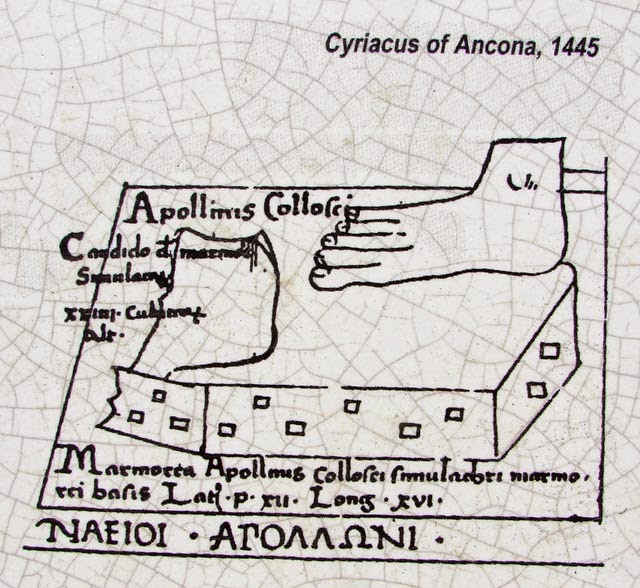 Cyriacus of Ancona, 1445
Apollinis Collosei
Candido đ marmore
Simulacrum
xxiiii. Cubitorum
alt.
Marmorea Apollinis Collosei simulachri marmo.
rei basis Lat. p. xii. Long. xvi.
ΝΑΕΙΟΙ · ΑΓΟΛΛΩΝΙ ·